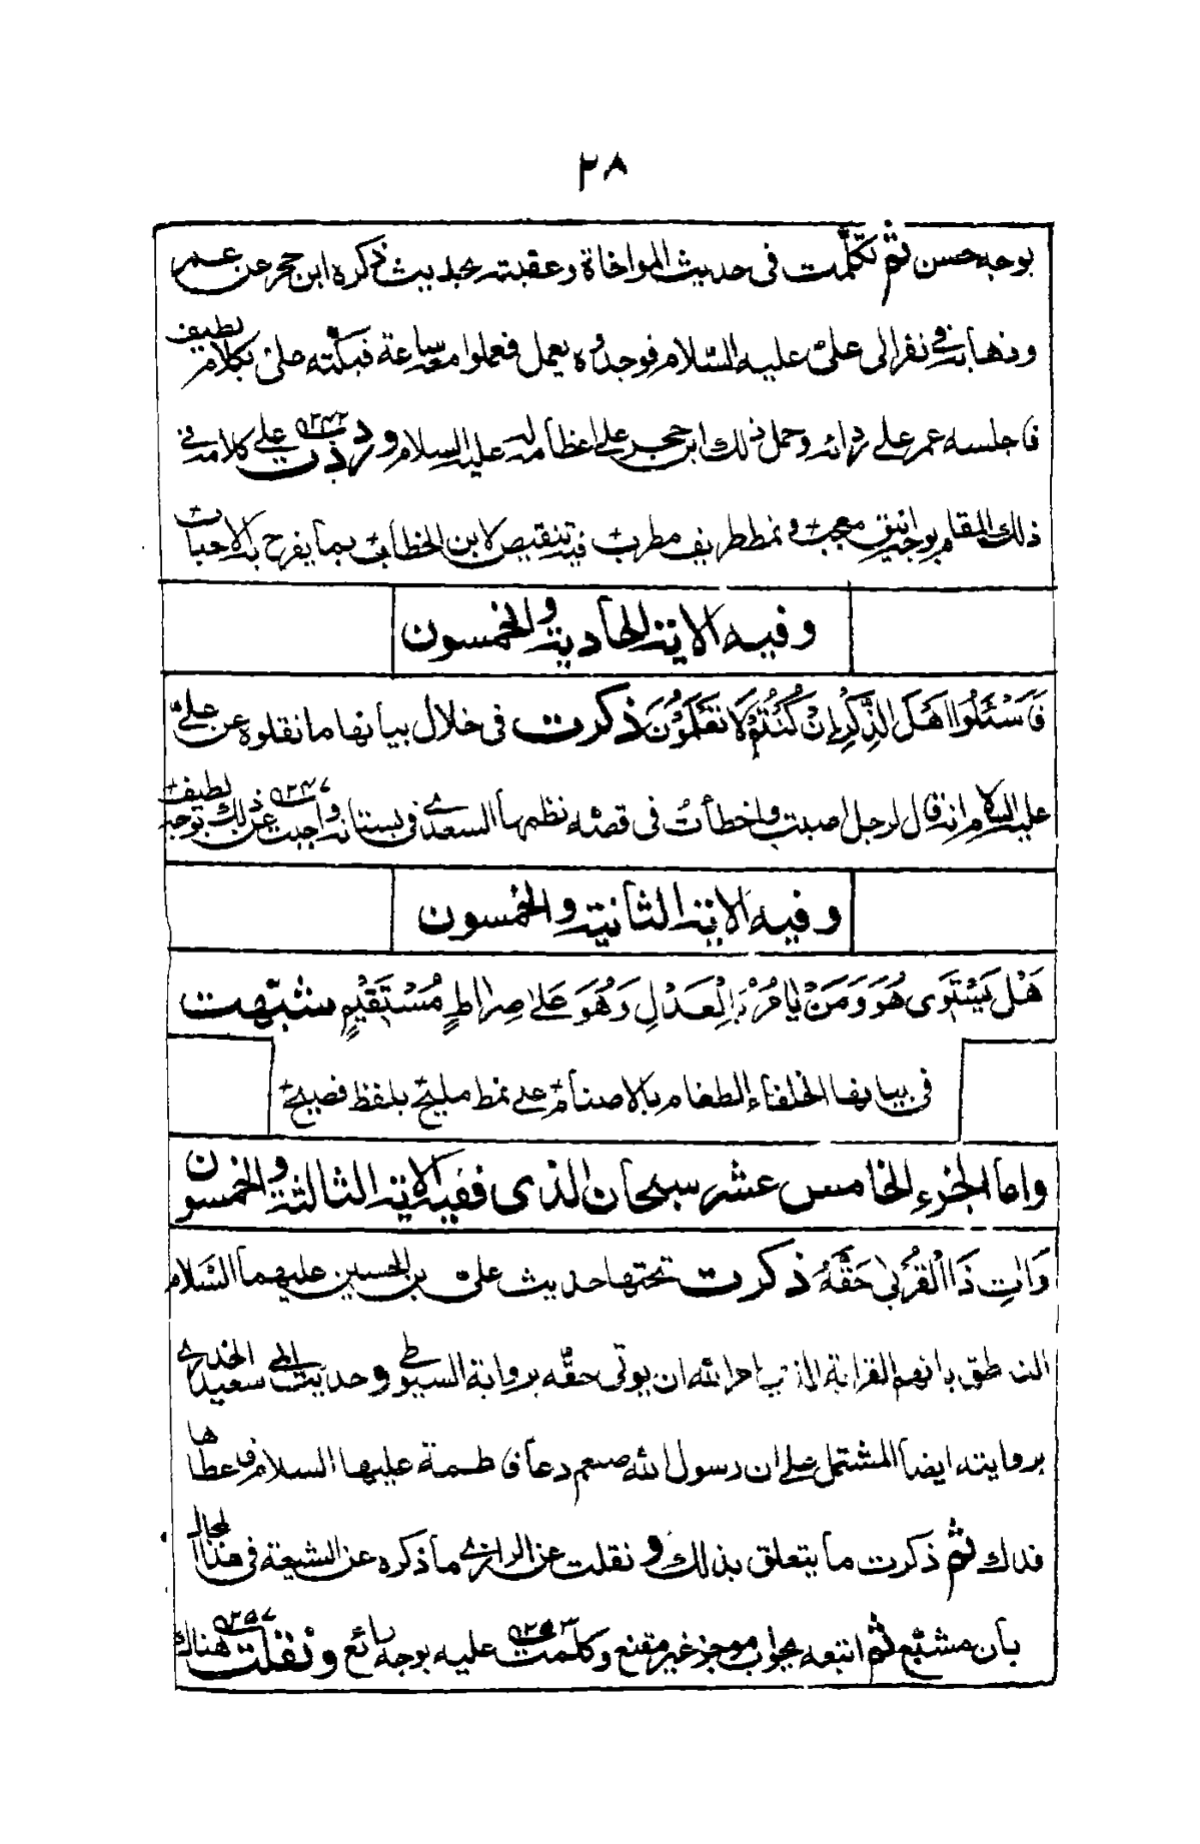 ٢٨
بوجه حسن ثم تكلّمت فى حديث المواخاة وعقبته بحديث ذكره ابن حجر عن عمر
وذهابه فى نفر الى علىّ عليه السّلام فوجدوه يعمل فعملوا معه ساعة علىّ بكلام لطيف
فاجلسه عمر على ردائه وحمل ذلك ابن حجر على اعظامه له عليه السلام ورددت على كلامه فى
ذلك المقام بوجه انيق معجب ونمط طريف مطرب فيه تنقيص لابن الخطاب بما يفرح به الاحباب
وفيه الاية الحادية والخمسون
فَاسْئَلُوا اَهْلَ الذِّكْرِ اِنْ كُنْتُمْ لَا تَعْلَمُوْنَ ذكرت فى خلال بيانها ما نقلوه عن علىّ
عليه السلام انه قال لرجل اصبت واخطأت فى قصّه نظمها السعدى فى بستانه واجبت عن ذلك بوجه لطيف
وفيه الاية الثانية والخمسون
هَلْ يَسْتَوِى هُوَ وَمَنْ يَأْمُرُ بِالْعَدْلِ وَهُوَ عَلٰى صِرَاطٍ مُسْتَقِيْمٍ شبّهت
فى بيانها الخلفاء الطغام بالاصنام على نمط مليح بلفظ فصيح
واما الجزء الخامس عشر سبحان الذى ففيه الاية الثالثة والخمسون
وَاٰتِ ذَا الْقُرْبٰى حَقَّهُ ذكرت تحتها حديث علىّ بن الحسين عليهما السّلام
الناطق بانهم القرابة الذى امر الله ان يوتى حقّه برواية السيوطى وحديث ابى سعيد الخدرى
بروايته ايضا المشتمل على ان رسول الله صلعم دعا فاطمة عليها السلام فاعطاها
فدك ثم ذكرت ما يتعلق بذلك ونقلت عن الرازى ما ذكره عن الشيعة فى هذا المجال
بأن مشبّع ثم اتبعه بجواب موجز غير مقنع وكلمت عليه بوجه رائع ونقلت هناك